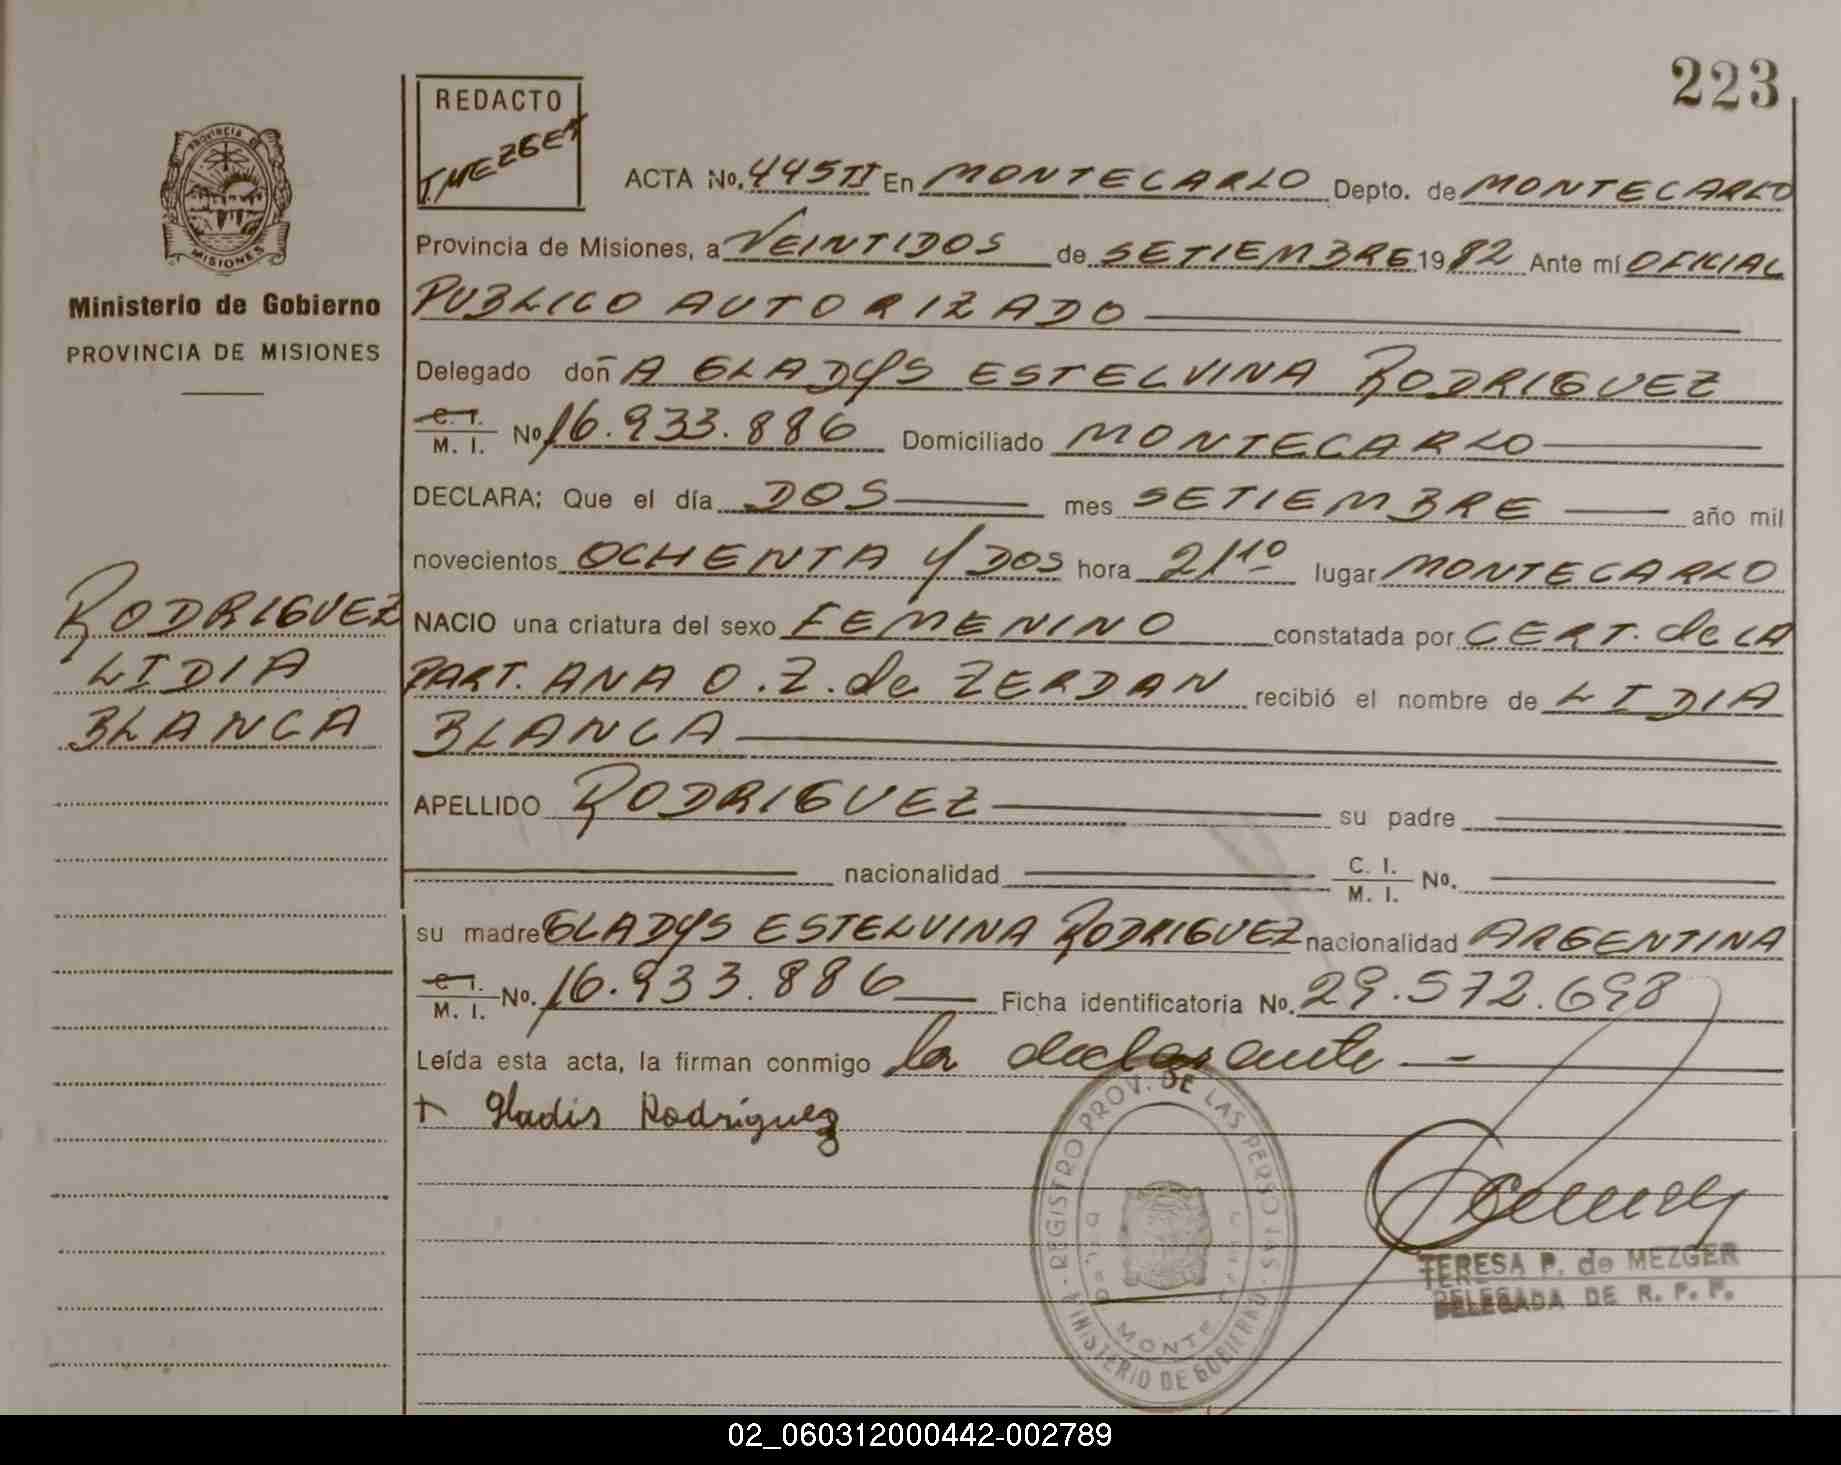 223
REDACTO
T. MEZGER
ACTA No. 445 II En MONTECARLO Depto. de MONTECARLO
Provincia de Misiones, a VEINTIDOS de SETIEMBRE 1982 Ante mí OFICIAL
PUBLICO AUTORIZADO
Delegado doñA GLADYS ESTELVINA RODRIGUEZ
C. I.
M. I. No. 16.933.886 Domiciliado MONTECARLO
DECLARA; Que el día DOS mes SETIEMBRE año mil
novecientos OCHENTA Y DOS hora 21 10 lugar MONTECARLO
NACIO una criatura del sexo FEMENINO constatada por CERT. de LA
PART. ANA O. Z. de ZERDAN recibió el nombre de LIDIA
BLANCA
APELLIDO RODRIGUEZ su padre
nacionalidad C. I.
M. I. No.
su madre GLADYS ESTELVINA RODRIGUEZ nacionalidad ARGENTINA
C. I.
M. I. No. 16.933.886 Ficha identificatoria No. 29.572.698
Leída esta acta, la firman conmigo la declarante
+ Gladis Rodríguez
PROVINCIA DE
MISIONES
Ministerio de Gobierno
PROVINCIA DE MISIONES
RODRIGUEZ
LIDIA
BLANCA
REGISTRO PROV. DE LAS PERSONAS
MINISTERIO DE GOBIERNO
MONTE
TERESA P. de MEZGER
DELEGADA DE R. P. P.
02_060312000442-002789